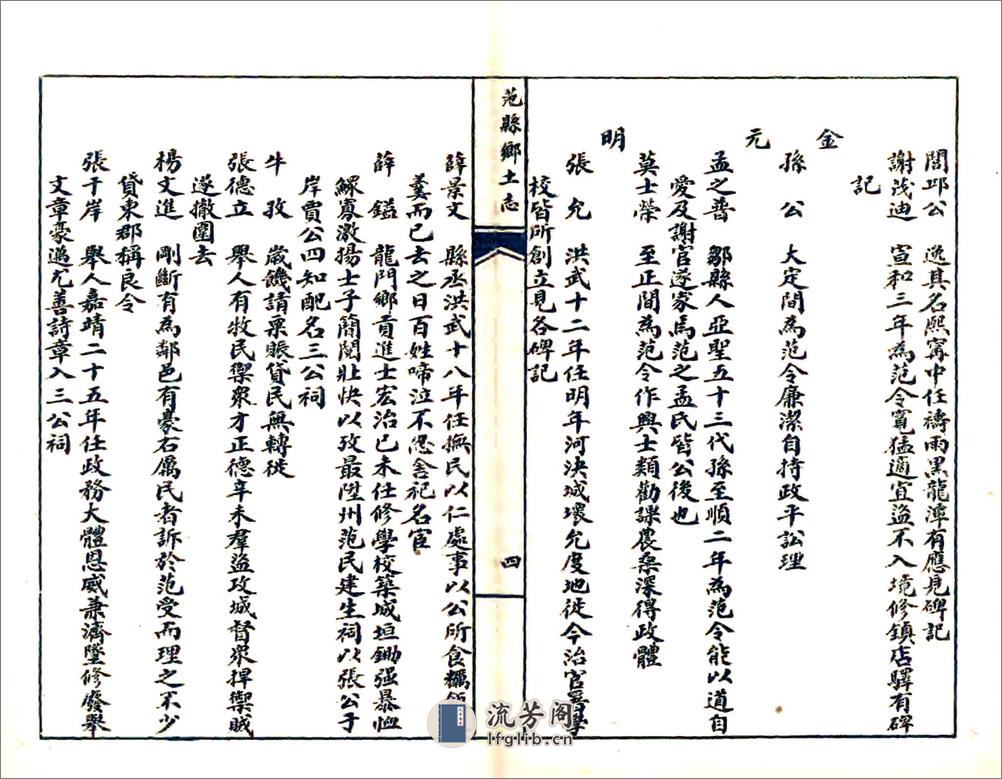 閻邱公　逸其名熙寗中任禱雨黑龍潭有應見碑記
謝茂迪　宣和三年為范令寬猛適宜盜不入境修鎮店驛有碑
記
金
孫　公　大定間為范令廉潔自持政平訟理
元
孟之普　鄒縣人亞聖五十三代孫至順二年為范令能以道自
愛及謝官遂家焉范之孟氏皆公後也
莫士榮　至正間為范令作興士類勸課農桑深得政體
明
張　允　洪武十二年任明年河決城壞允度地徙今治官署學
校皆所創立見各碑記
范縣鄉土志
四
薛景文　縣丞洪武十八年任撫民以仁處事以公所食糲飯
羹而已去之日百姓啼泣不忍舍祀名宦
薛　鎰　龍門鄉貢進士宏治已未任修學校築城垣鋤强暴恤
鰥寡激揚士子簡閱壯快以孜最陞州范民建生祠以張公于
岸賈公四知配名三公祠
牛　孜　歲饑請粟賑貸民無轉徙
張德立　舉人有牧民禦眾才正德辛未羣盜攻城督眾捍禦賊
遂撤圍去
楊文進　剛斷有為鄰邑有豪右厲民者訴於范受而理之不少
貸東郡稱良令
張于岸　舉人嘉靖二十五年任政務大體恩威兼濟墜修廢舉
文章豪邁尤善詩章入三公祠
流芳阁
lfglib.cn